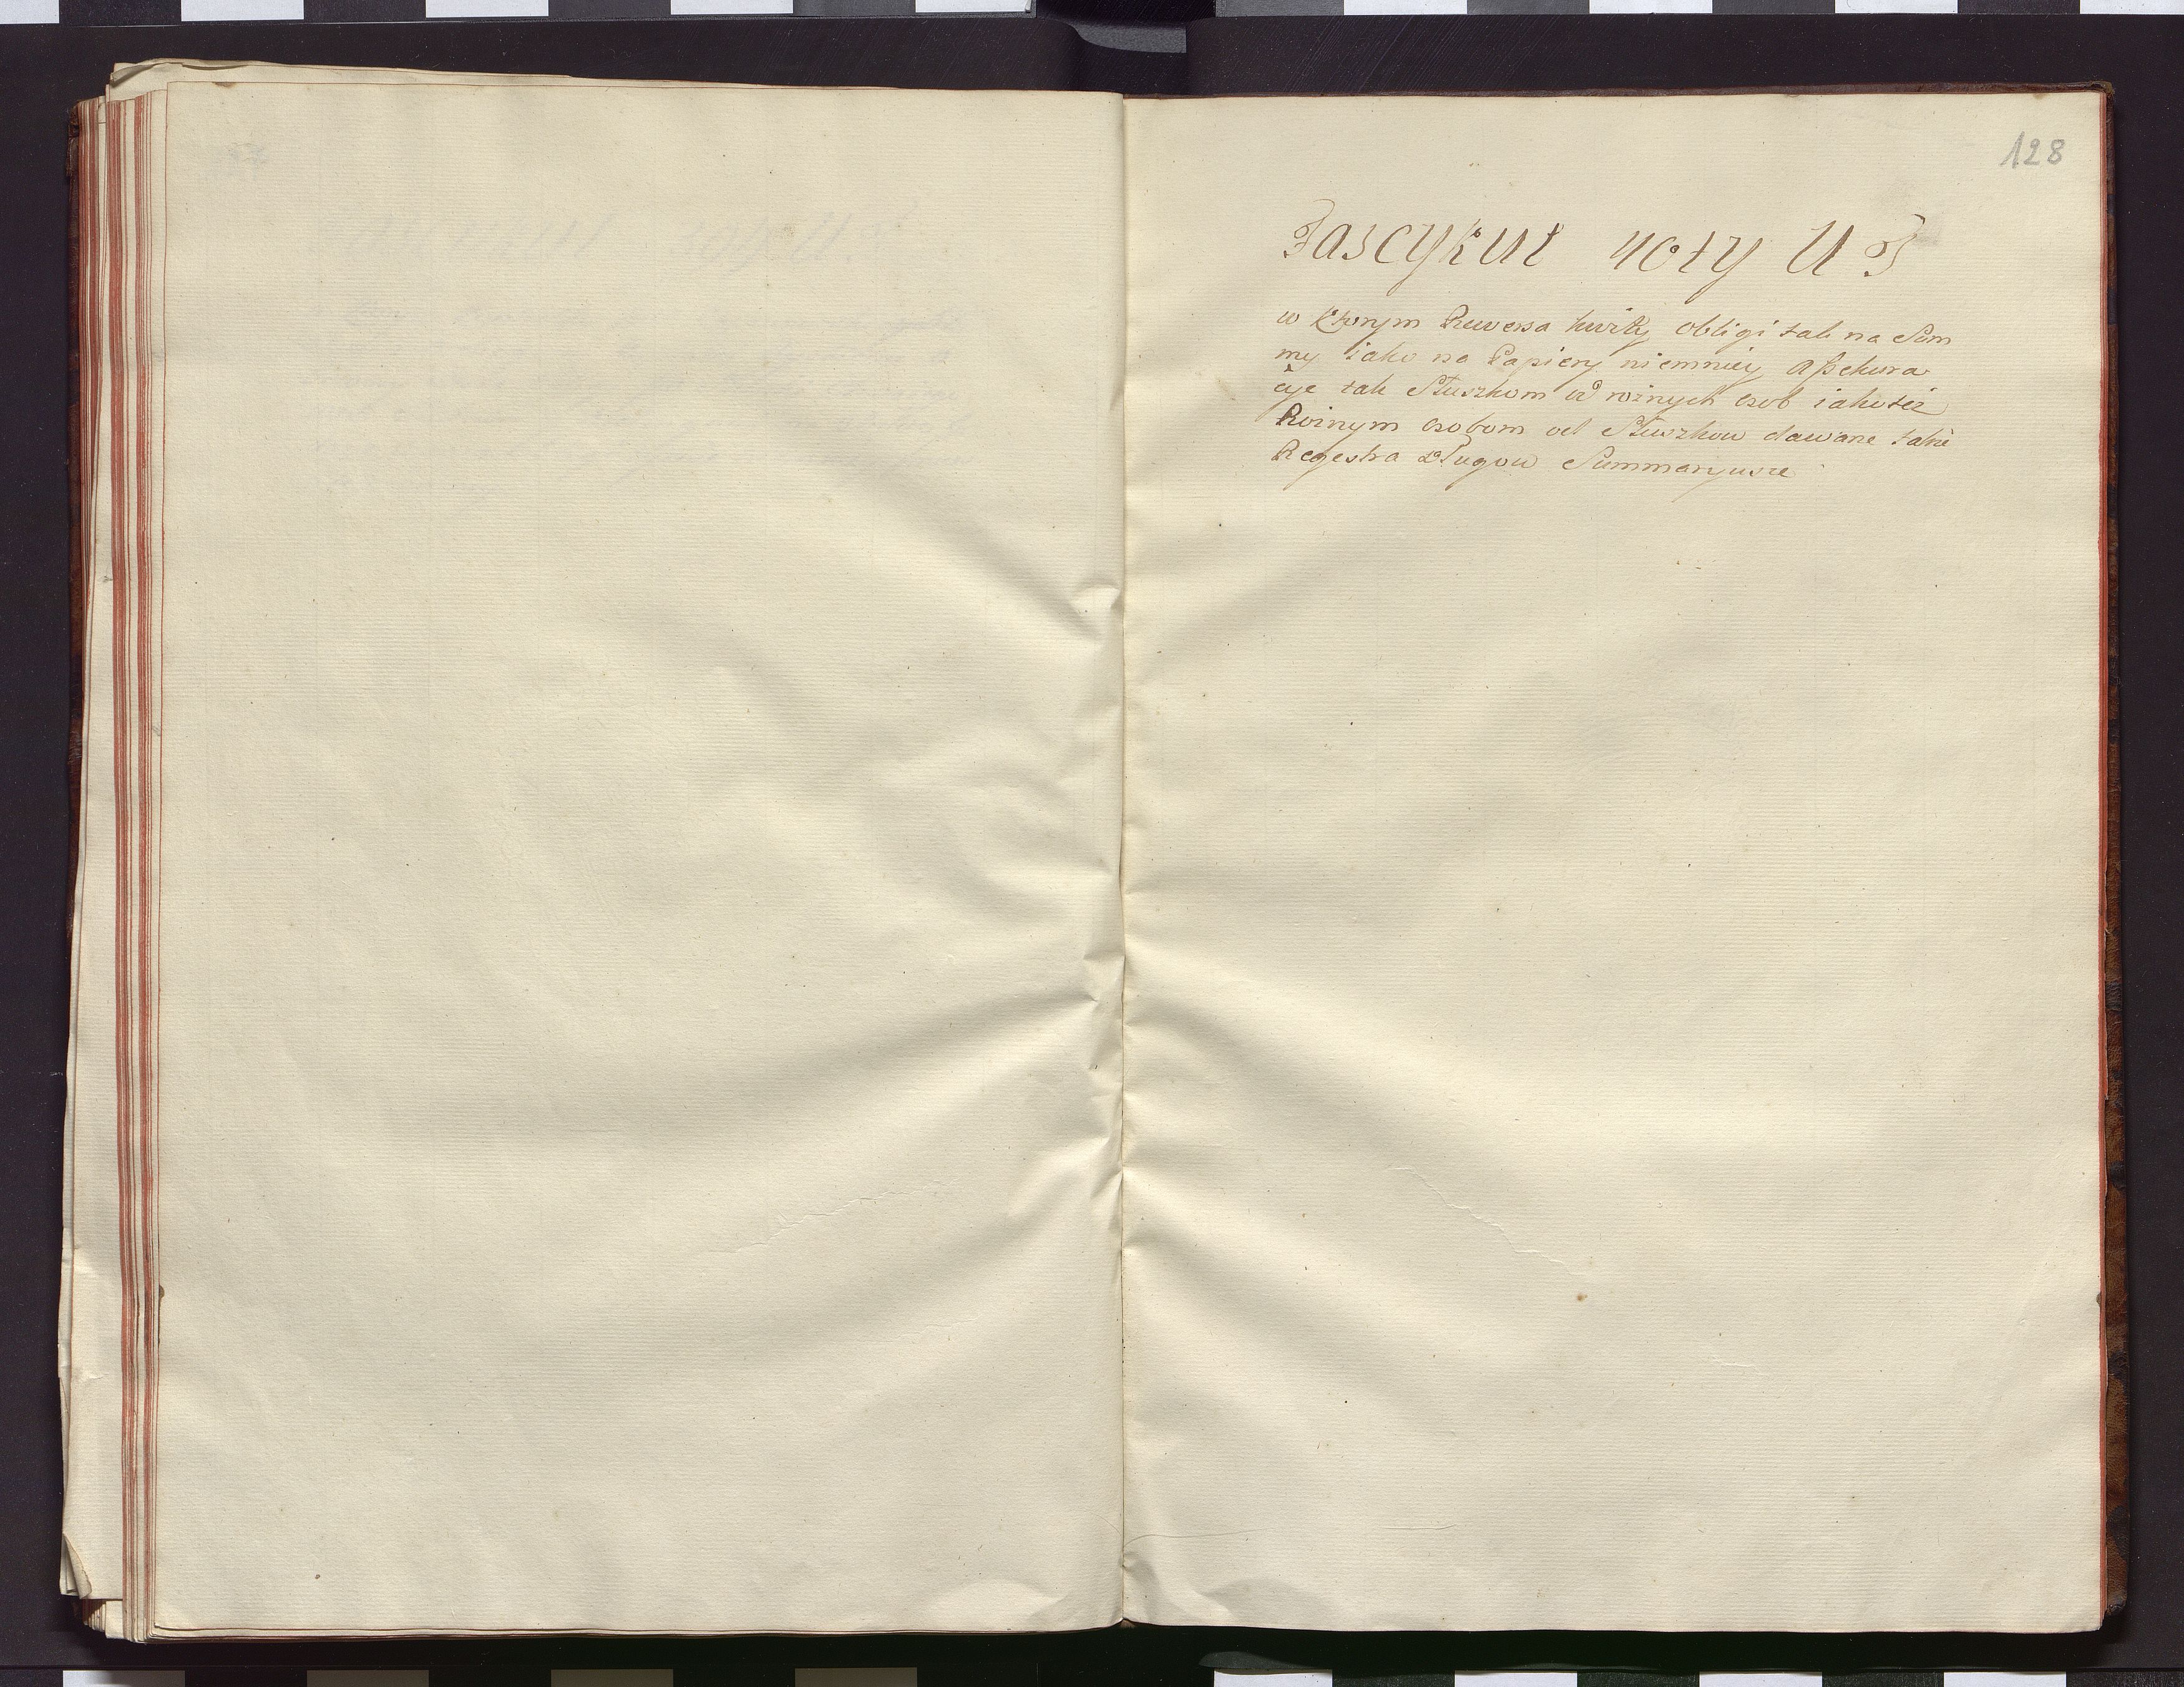 128
Fascykuł noty U J
w ktorym Rewersa kwity obligi tak na Sum
my iako na Papiery niemniey aßekura
cye tak Słuszkom od rożnych osob iakoteż
Rożnym osobom od Słuszkow dawane także
Regestra Długow Summaryusze